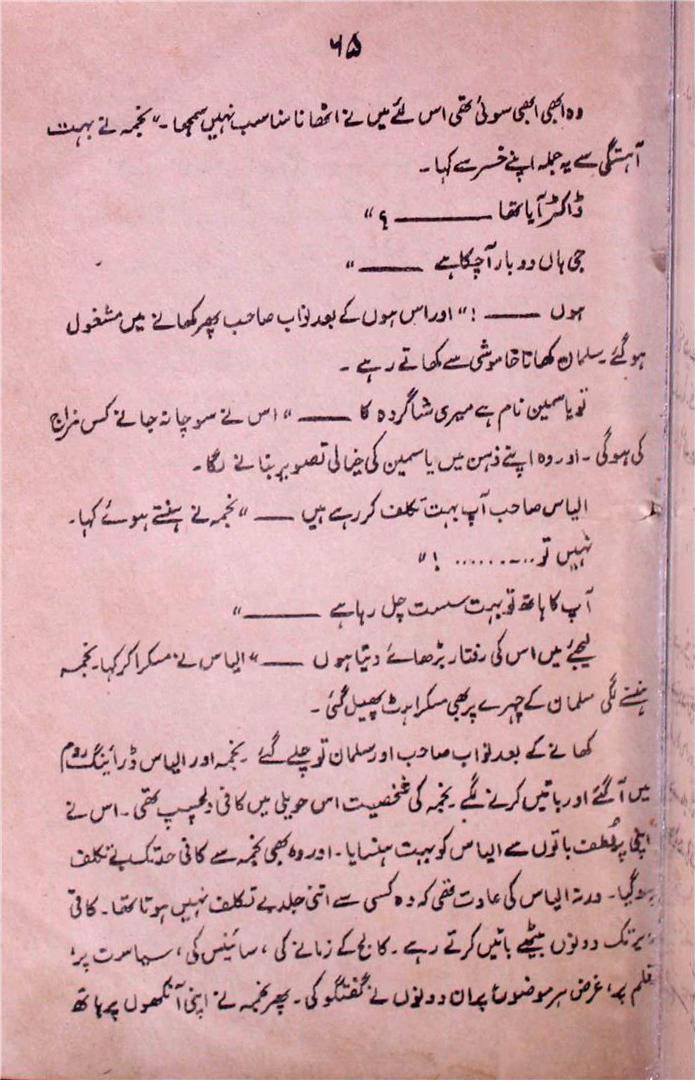 ۶۵
وہ ابھی ابھی سوئی تھی اس لئے میں نے اٹھانا مناسب نہیں سمجھا ۔" نجمہ نے بہت
آہستگی سے یہ جملہ اپنے خسر سے کہا ۔
ڈاکٹر آیا تھا ——— ؟"
جی ہاں دو بار آچکا ہے ——— "
ہوں ——— !" اور اس ہوں کے بعد نواب صاحب پھر کھانے میں مشغول
ہو گئے ۔ سلمان کھانا خاموشی سے کھاتے رہے ۔
تو یاسمین نام ہے میری شاگردہ کا ——— " اس نے سوچا نہ جانے کس مزاج
کی ہوگی ۔ اور وہ اپنے ذہن میں یاسمین کی خیالی تصویر بنانے لگا ۔
الیاس صاحب آپ بہت تکلف کر رہے ہیں ——— " نجمہ نے ہنستے ہوئے کہا ۔
نہیں تو ......... !"
آپ کا ہاتھ تو بہت سست چل رہا ہے ——— "
لیجئے میں اس کی رفتار بڑھائے دیتا ہوں ——— " الیاس نے مسکرا کر کہا ۔ نجمہ
ہنسنے لگی سلمان کے چہرے پر بھی مسکراہٹ پھیل گئی ۔
کھانے کے بعد نواب صاحب اور سلمان تو چلے گئے ۔ نجمہ اور الیاس ڈرائینگ روم
میں آگئے اور باتیں کرنے لگے ۔ نجمہ کی شخصیت اس حویلی میں کافی دلچسپ تھی ۔ اس نے
اپنی پرلطف باتوں سے الیاس کو بہت ہنسایا ۔ اور وہ بھی نجمہ سے کافی حد تک بے تکلف
ہو گیا ۔ ورنہ الیاس کی عادت تھی کہ وہ کسی سے اتنی جلد بے تکلف نہیں ہوتا تھا ۔ کافی
دیر تک دونوں بیٹھے باتیں کرتے رہے ۔ کالج کے زمانے کی ، سائینس کی ، سیاست پر ،
فلم پر ، غرض ہر موضوع پر ان دونوں نے گفتگو کی ۔ پھر نجمہ نے اپنی آنکھوں پر ہاتھ